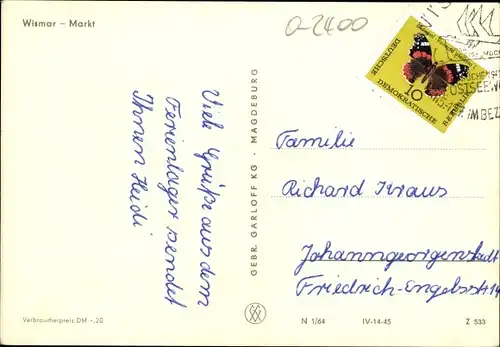 Wismar – Markt
0-2400
DEUTSCHE
DEMOKRATISCHE
REPUBLIK
10
OSTSEEW
IM BEZ
Viele Grüße aus dem
Ferienlager sendet
Ihnen Heidi
GEBR. GARLOFF KG · MAGDEBURG
Familie
Richard Kraus
Johanngeorgenstadt
Friedrich-Engelsstr 14
Verbraucherpreis DM -,20
N 1/64
IV-14-45
Z 533